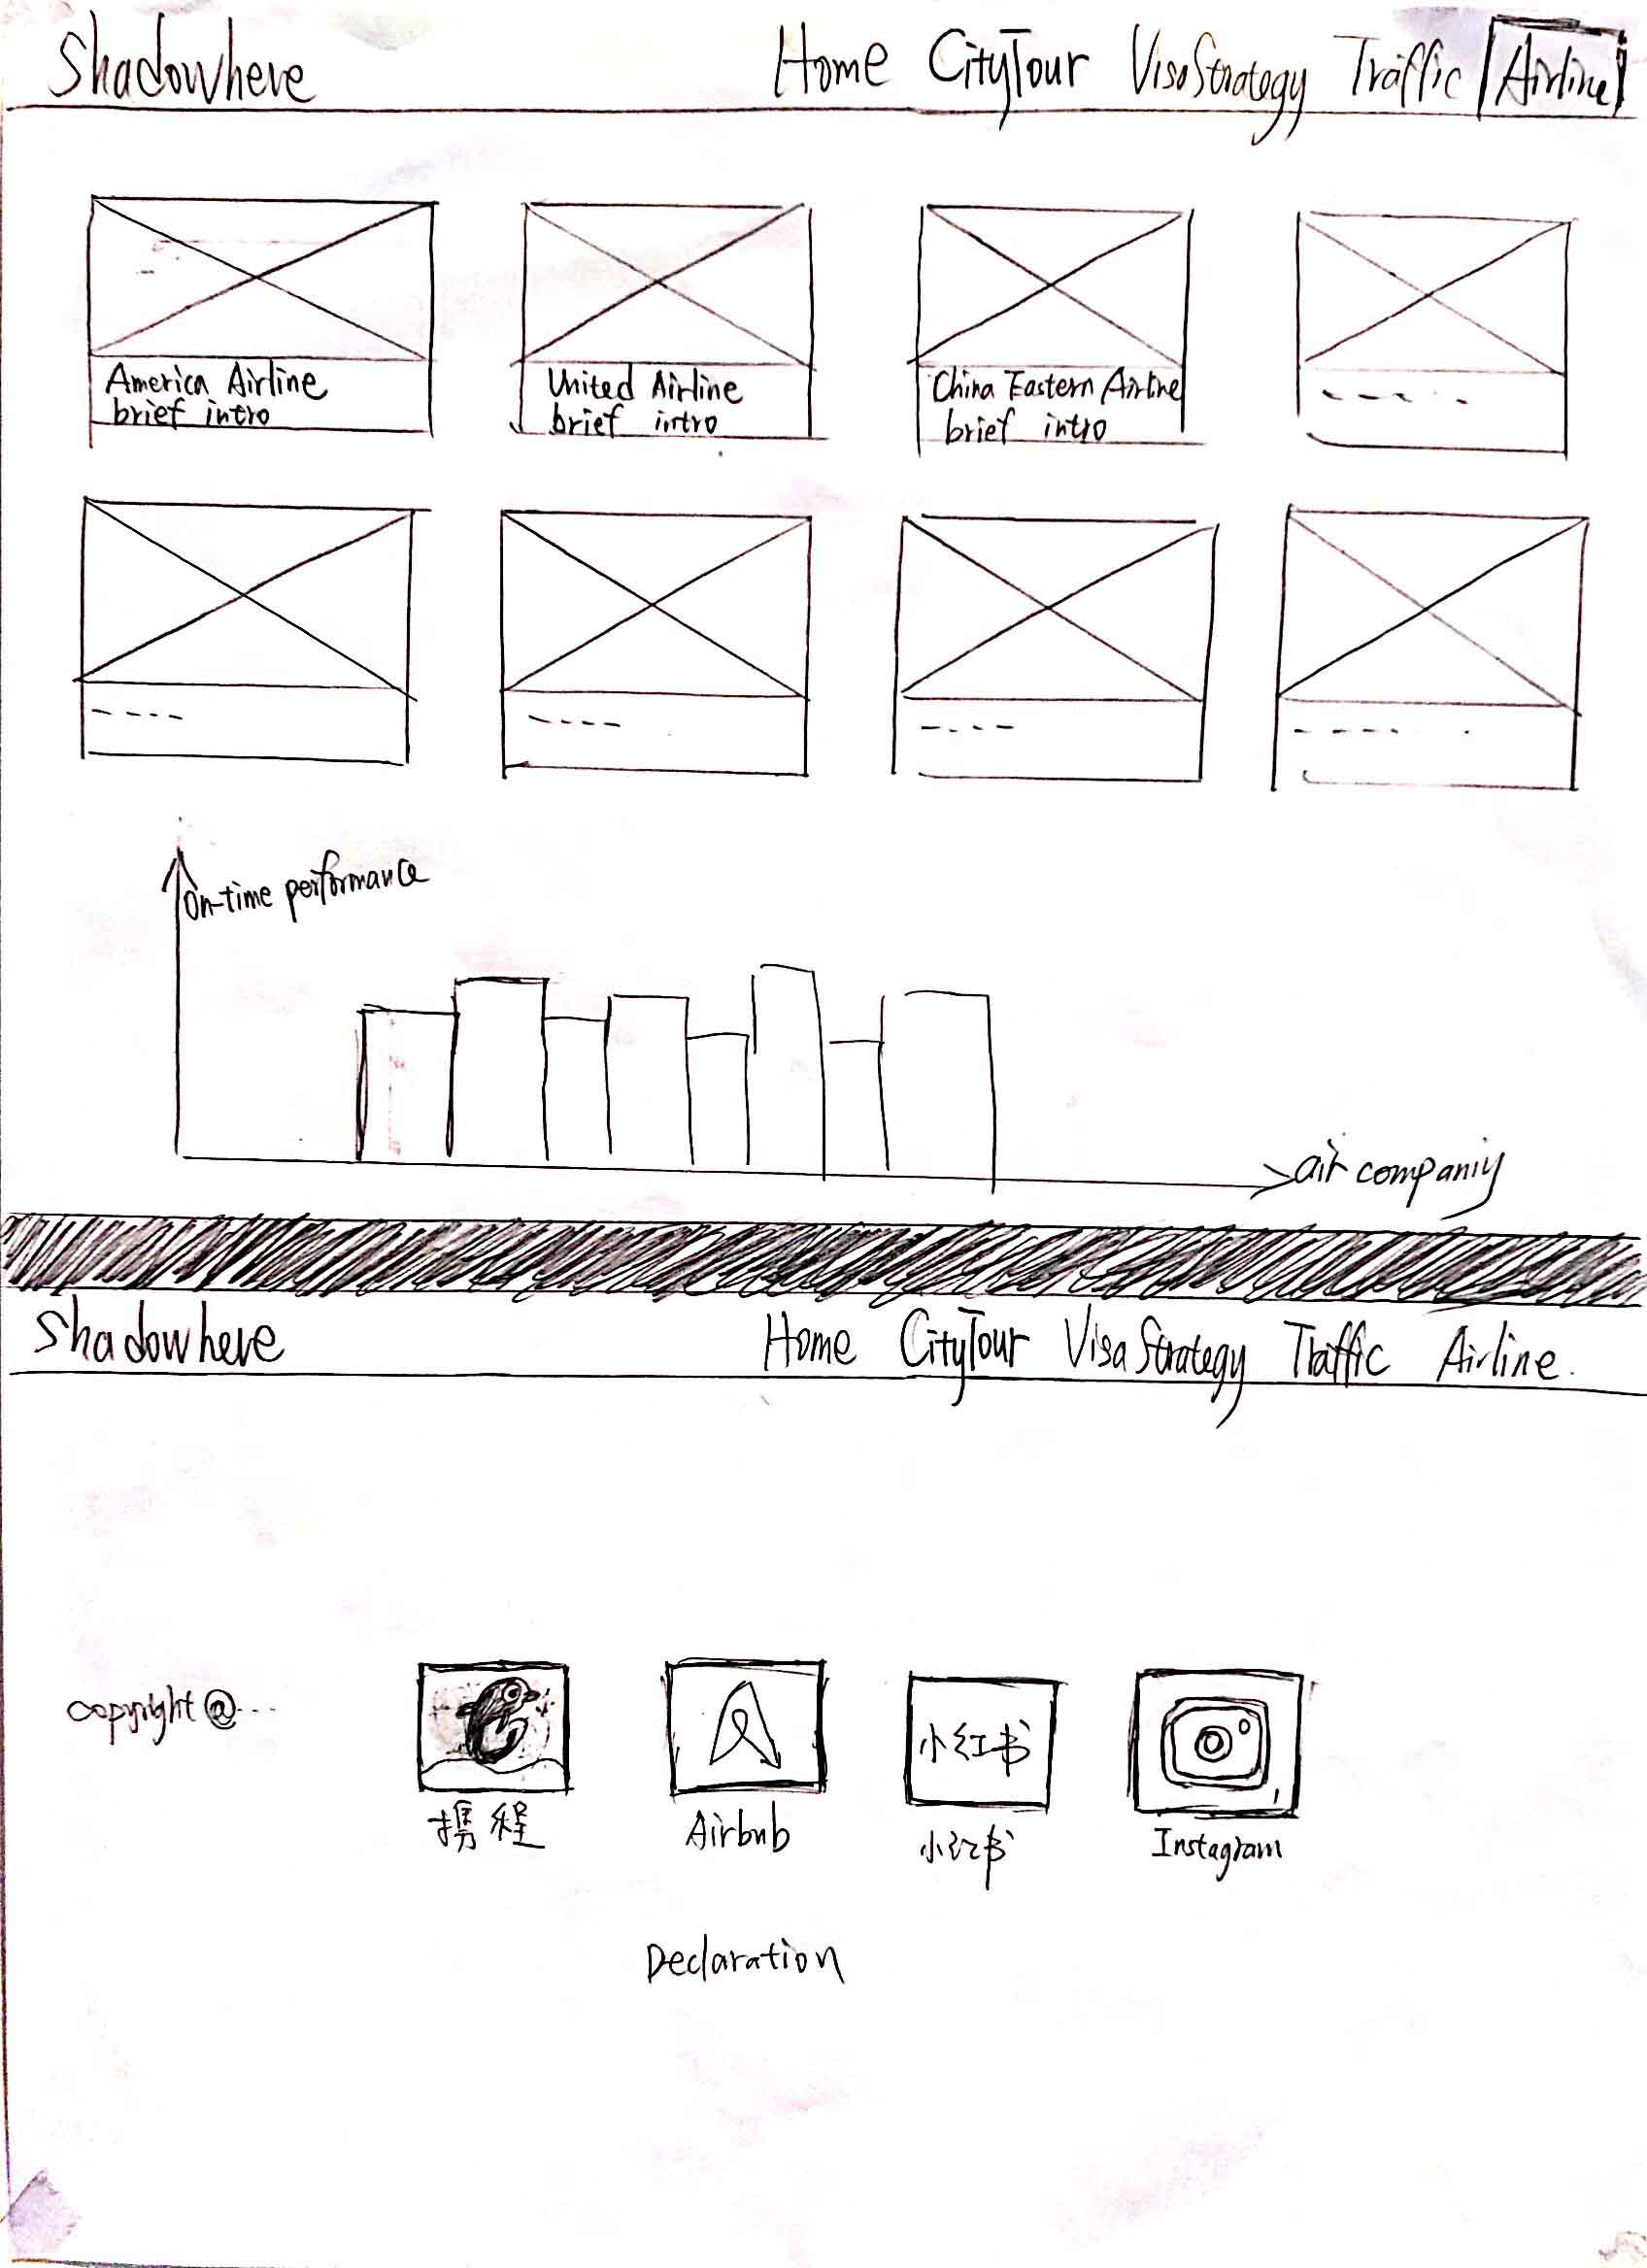 Shadowhere Home CityTour VisaStrategy Traffic Airline
America Airline
brief intro
United Airline
brief intro
China Eastern Airline
brief intro
On-time performance
air companiy
Shadowhere Home CityTour Visa Strategy Traffic Airline.
copyright @....
小红书
携程
Airbnb
小红书
Instagram
Declaration